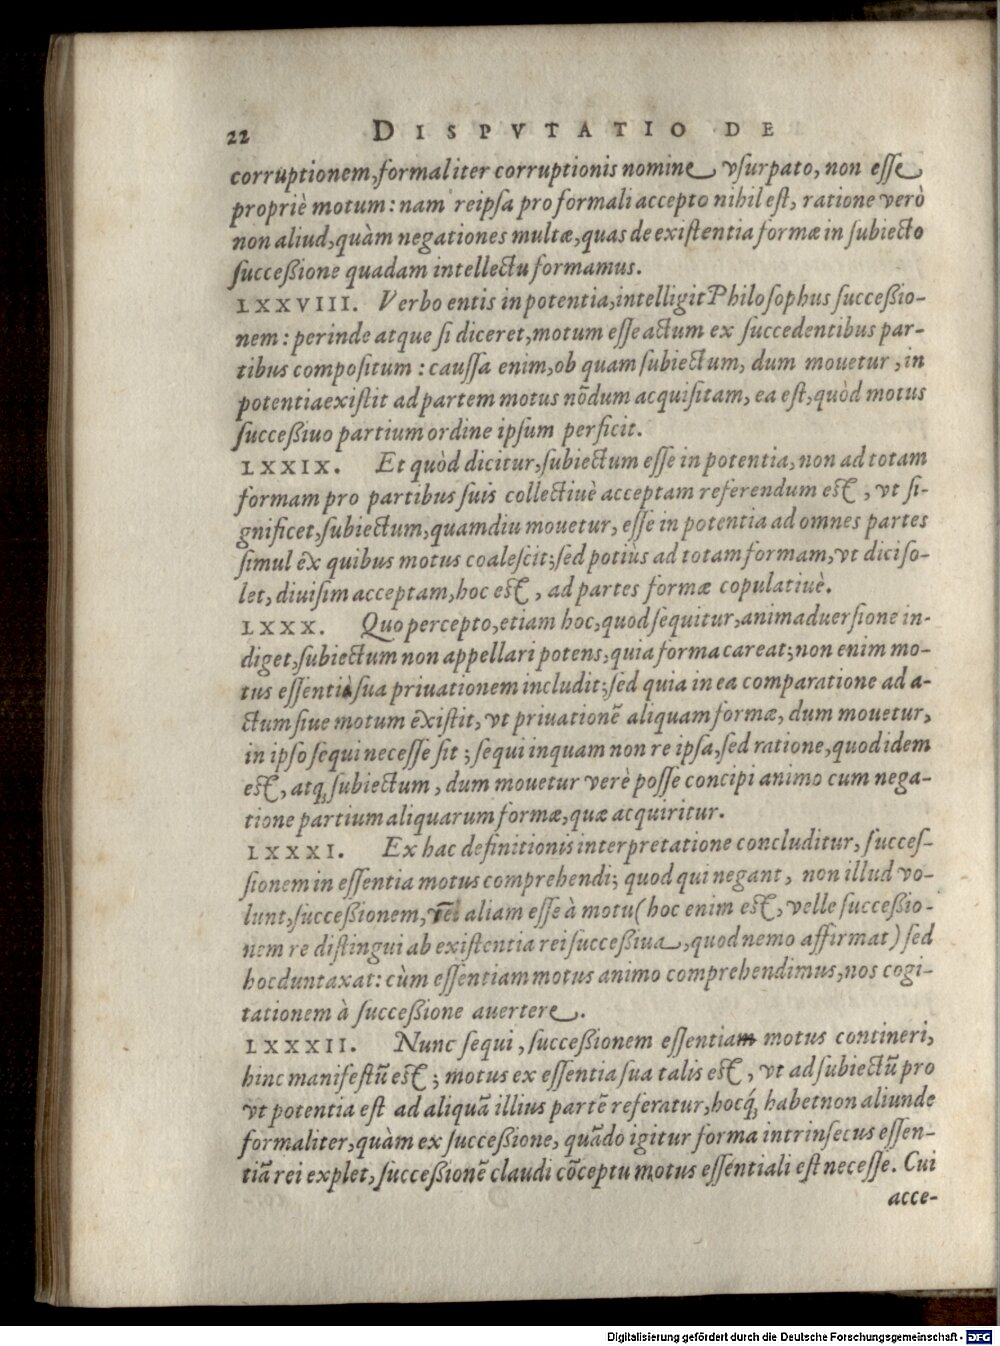 22 DISPVTATIO DE
corruptionem, formaliter corruptionis nomine vſurpato, non eſſe
propriè motum: nam reipſa pro formali accepto nihil eſt, ratione verò
non aliud, quàm negationes multæ, quas de exiſtentia formæ in ſubiecto
ſucceßione quadam intellectu formamus.
LXXVIII. Verbo entis in potentia, intelligit Philoſophus ſucceßio-
nem: perinde atque ſi diceret, motum eſſe actum ex ſuccedentibus par-
tibus compoſitum: cauſſa enim, ob quam ſubiectum, dum mouetur, in
potentia exiſtit ad partem motus nõdum acquiſitam, ea eſt, quòd motus
ſucceßiuo partium ordine ipſum perficit.
LXXIX. Et quòd dicitur, ſubiectum eſſe in potentia, non ad totam
formam pro partibus ſuis collectiuè acceptam referendum eſt, vt ſi-
gnificet, ſubiectum, quamdiu mouetur, eſſe in potentia ad omnes partes
ſimul ex quibus motus coaleſcit; ſed potiùs ad totam formam, vt dici ſo-
let, diuiſim acceptam, hoc eſt, ad partes formæ copulatiuè.
LXXX. Quo percepto, etiam hoc, quod ſequitur, animaduerſione in-
diget, ſubiectum non appellari potens, quia forma careat; non enim mo-
tus eſſentia ſua priuationem includit; ſed quia in ea comparatione ad a-
ctum ſiue motum exiſtit, vt priuationẽ aliquam formæ, dum mouetur,
in ipſo ſequi neceſſe ſit; ſequi inquam non re ipſa, ſed ratione, quod idem
eſt, atq; ſubiectum, dum mouetur verè poſſe concipi animo cum nega-
tione partium aliquarum formæ, quæ acquiritur.
LXXXI. Ex hac definitionis interpretatione concluditur, ſucceſ-
ſionem in eſſentia motus comprehendi; quod qui negant, non illud vo-
lunt, ſucceßionem, aliam eſſe à motu (hoc enim eſt, velle ſucceßio-
nem re diſtingui ab exiſtentia rei ſucceßiua, quod nemo affirmat) ſed
hoc duntaxat: cùm eſſentiam motus animo comprehendimus, nos cogi-
tationem à ſucceßione auertere.
LXXXII. Nunc ſequi, ſucceßionem eſſentiam motus contineri,
hinc manifeſtũ eſt; motus ex eſſentia ſua talis eſt, vt ad ſubiectũ pro
vt potentia eſt ad aliquã illius partẽ referatur, hocq́; habet non aliunde
formaliter, quàm ex ſucceßione, quãdo igitur forma intrinſecus eſſen-
tiã rei explet, ſucceßionẽ claudi cõceptu motus eſſentiali eſt neceſſe. Cui
acce-
Digitalisierung gefördert durch die Deutsche Forschungsgemeinschaft - DFG